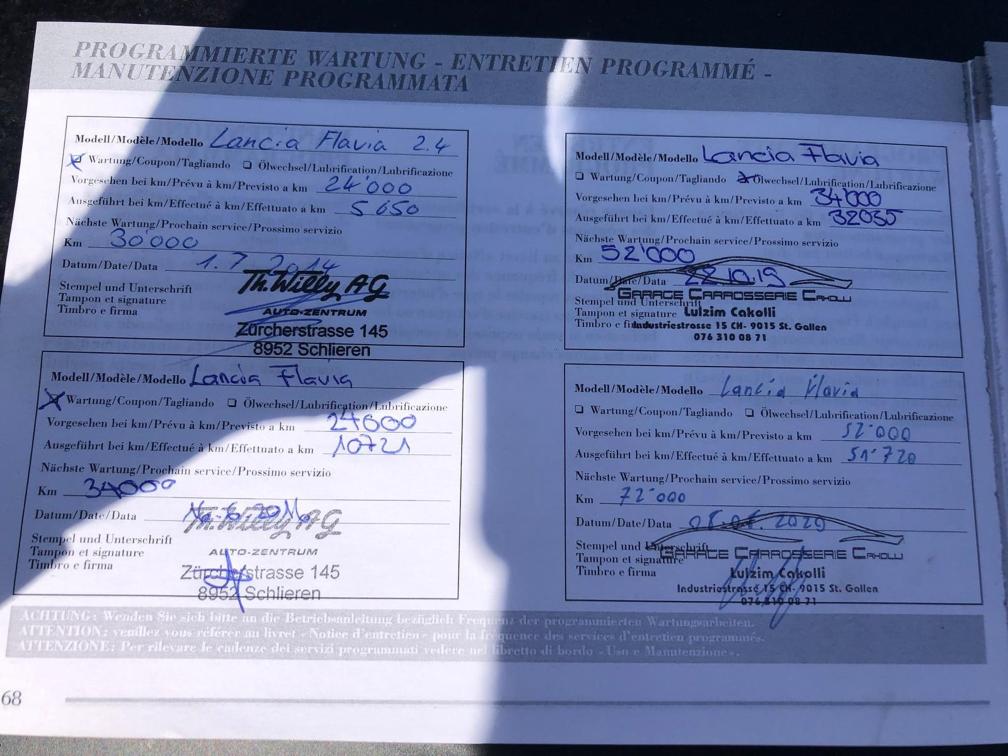 PROGRAMMIERTE WARTUNG - ENTRETIEN PROGRAMMÉ -
MANUTENZIONE PROGRAMMATA
Modell/Modèle/Modello Lancia Flavia 2.4
Wartung/Coupon/Tagliando Ölwechsel/Lubrification/Lubrificazione
Vorgesehen bei km/Prévu à km/Previsto a km 24'000
Ausgeführt bei km/Effectué à km/Effettuato a km 5650
Nächste Wartung/Prochain service/Prossimo servizio
Km 30000
Datum/Date/Data 1.7.2014
Stempel und Unterschrift
Tampon et signature
Timbro e firma
Th. Willy AG
AUTO-ZENTRUM
Zürcherstrasse 145
8952 Schlieren
Modell/Modèle/Modello Lancia Flavia
Wartung/Coupon/Tagliando Ölwechsel/Lubrification/Lubrificazione
Vorgesehen bei km/Prévu à km/Previsto a km 24000
Ausgeführt bei km/Effectué à km/Effettuato a km 10721
Nächste Wartung/Prochain service/Prossimo servizio
Km 34000
Datum/Date/Data
Stempel und Unterschrift
Tampon et signature
Timbro e firma
Th. Willy AG
AUTO-ZENTRUM
Zürcherstrasse 145
8952 Schlieren
Modell/Modèle/Modello Lancia Flavia
Wartung/Coupon/Tagliando Ölwechsel/Lubrification/Lubrificazione
Vorgesehen bei km/Prévu à km/Previsto a km 34'000
Ausgeführt bei km/Effectué à km/Effettuato a km 32035
Nächste Wartung/Prochain service/Prossimo servizio
Km 52'000
Datum/Date/Data 22.10.19
Stempel und Unterschrift
Tampon et signature
Timbro e firma
GARAGE CARROSSERIE CAKOLLI
Lulzim Cakolli
Industriestrasse 15 CH- 9015 St. Gallen
076 310 08 71
Modell/Modèle/Modello Lancia Flavia
Wartung/Coupon/Tagliando Ölwechsel/Lubrification/Lubrificazione
Vorgesehen bei km/Prévu à km/Previsto a km 52'000
Ausgeführt bei km/Effectué à km/Effettuato a km 51'720
Nächste Wartung/Prochain service/Prossimo servizio
Km 72'000
Datum/Date/Data 2020
Stempel und Unterschrift
Tampon et signature
Timbro e firma
GARAGE CARROSSERIE CAKOLLI
Lulzim Cakolli
Industriestrasse 15 CH- 9015 St. Gallen
076 310 08 71
ACHTUNG: Wenden Sie sich bitte an die Betriebsanleitung bezüglich Frequenz der programmierten Wartungsarbeiten.
ATTENTION: veuillez vous référer au livret «Notice d'entretien» pour la fréquence des services d'entretien programmés.
ATTENZIONE: Per rilevare le cadenze dei servizi programmati vedere nel libretto di bordo «Uso e Manutenzione».
68